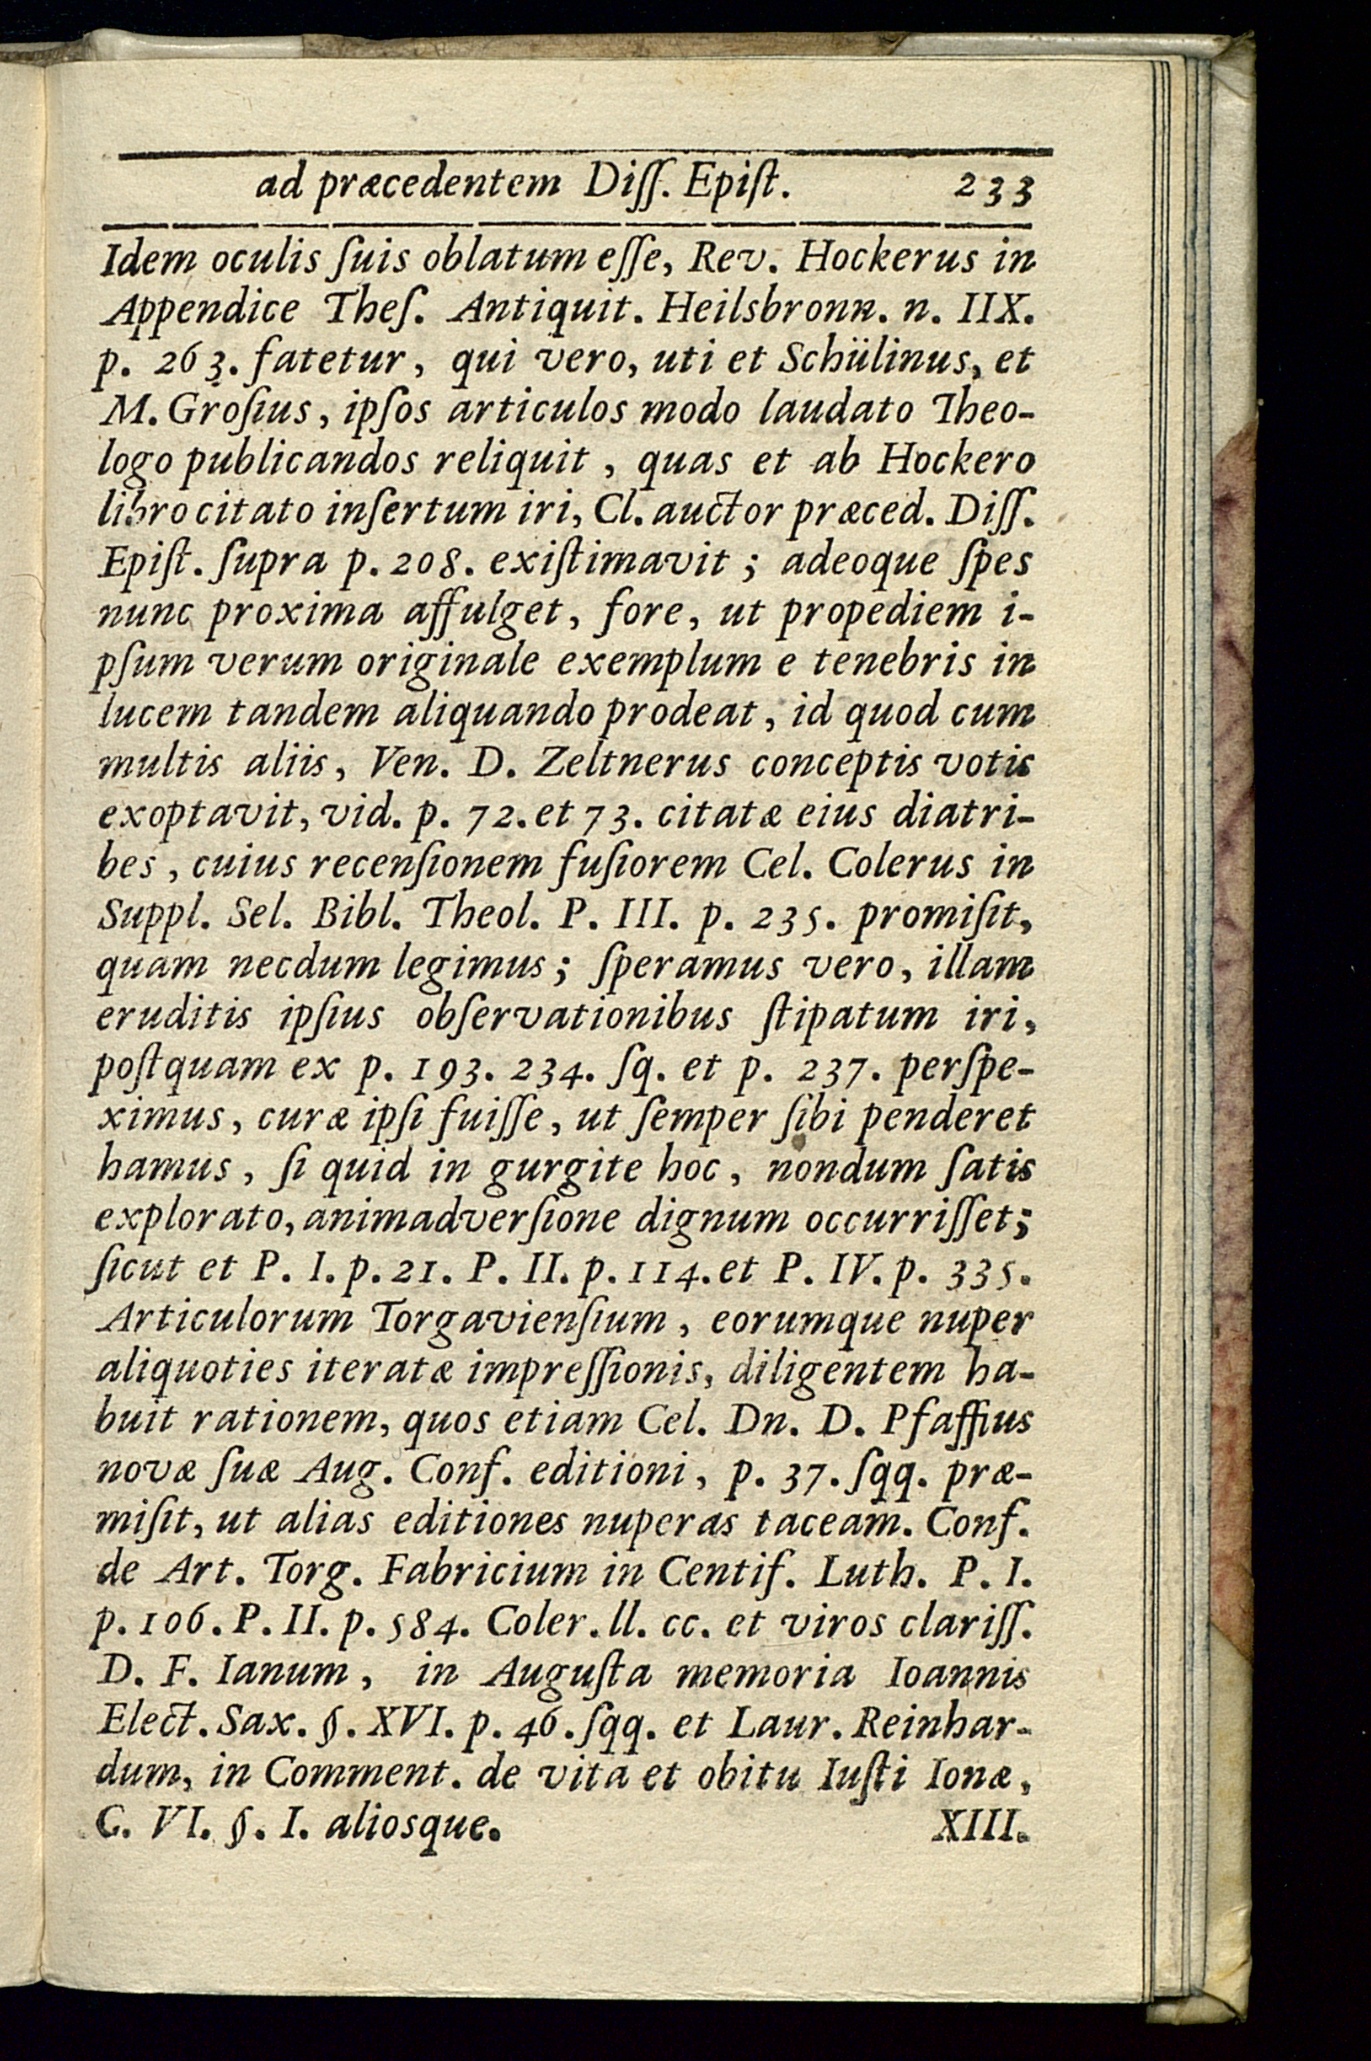 ad præcedentem Diſſ. Epiſt. 233
Idem oculis ſuis oblatum eſſe, Rev. Hockerus in
Appendice Theſ. Antiquit. Heilsbronn. n. IIX.
p. 263. fatetur, qui vero, uti et Schülinus, et
M. Groſius, ipſos articulos modo laudato Theo-
logo publicandos reliquit, quas et ab Hockero
libro citato inſertum iri, Cl. auctor præced. Diſſ.
Epiſt. ſupra p. 208. exiſtimavit; adeoque ſpes
nunc proxima affulget, fore, ut propediem i-
pſum verum originale exemplum e tenebris in
lucem tandem aliquando prodeat, id quod cum
multis aliis, Ven. D. Zeltnerus conceptis votis
exoptavit, vid. p. 72. et 73. citatæ eius diatri-
bes, cuius recenſionem fuſiorem Cel. Colerus in
Suppl. Sel. Bibl. Theol. P. III. p. 235. promiſit,
quam necdum legimus; ſperamus vero, illam
eruditis ipſius obſervationibus ſtipatum iri,
poſtquam ex p. 193. 234. ſq. et p. 237. perſpe-
ximus, curæ ipſi fuiſſe, ut ſemper ſibi penderet
hamus, ſi quid in gurgite hoc, nondum ſatis
explorato, animadverſione dignum occurriſſet;
ſicut et P. I. p. 21. P. II. p. 114. et P. IV. p. 335.
Articulorum Torgavienſium, eorumque nuper
aliquoties iteratæ impreſſionis, diligentem ha-
buit rationem, quos etiam Cel. Dn. D. Pfaffius
novæ ſuæ Aug. Conf. editioni, p. 37. ſqq. præ-
miſit, ut alias editiones nuperas taceam. Conf.
de Art. Torg. Fabricium in Centif. Luth. P. I.
p. 106. P. II. p. 584. Coler. ll. cc. et viros clariſſ.
D. F. Ianum, in Auguſta memoria Ioannis
Elect. Sax. §. XVI. p. 46. ſqq. et Laur. Reinhar-
dum, in Comment. de vita et obitu Iuſti Ionæ,
C. VI. §. I. aliosque. XIII.